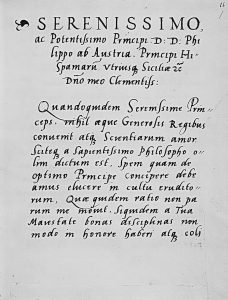 SERENISSIMO,
ac Potentissimo Principi D: D: Phi
lippo ab Austria. Principi Hi
spaniarū Vtriusq Siciliæ &c
Dño meo Clementiss:
Quandoquidem Serenissime Prin
ceps. nihil aque Generosis Regibus
conuenit atq Scientiarum amor
Sciteq a Sapientissimo Philosopho o
lim dictum est. Spem quam de
optimo Principe concipere debe
amus elucere in cultu erudito
rum, Quæ quidem ratio non pa
rum me mouit. Siquidem a Tua
Maiestate bonas disciplinas non
modo in honore haberi atq coli